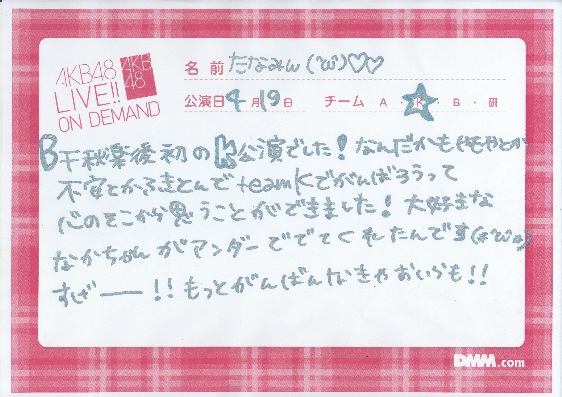 AKB48
LIVE!!
ON DEMAND
AKB
48
名前 たなみん(˙o˙)♡♡
公演日 4月19日 チーム A・K・B・研
B千秋楽後初のK公演でした！なんだかもやもやとか
不安とかふきとんでteamKでがんばろうって
心のそこから思うことができました！大好きな
なかちゃんがアンダーででてくれたんです
すげ――!!もっとがんばんなきゃおいらも!!
DMM.com